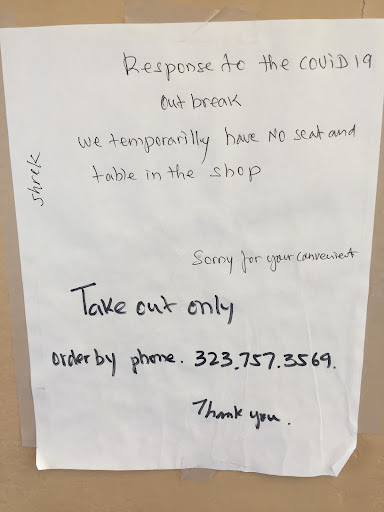 Response to the COViD 19
out break
we temporarilly have NO seat and
table in the shop
shrek
Sorry for your convenient
Take out only
order by phone. 323.757.3569.
Thank you.